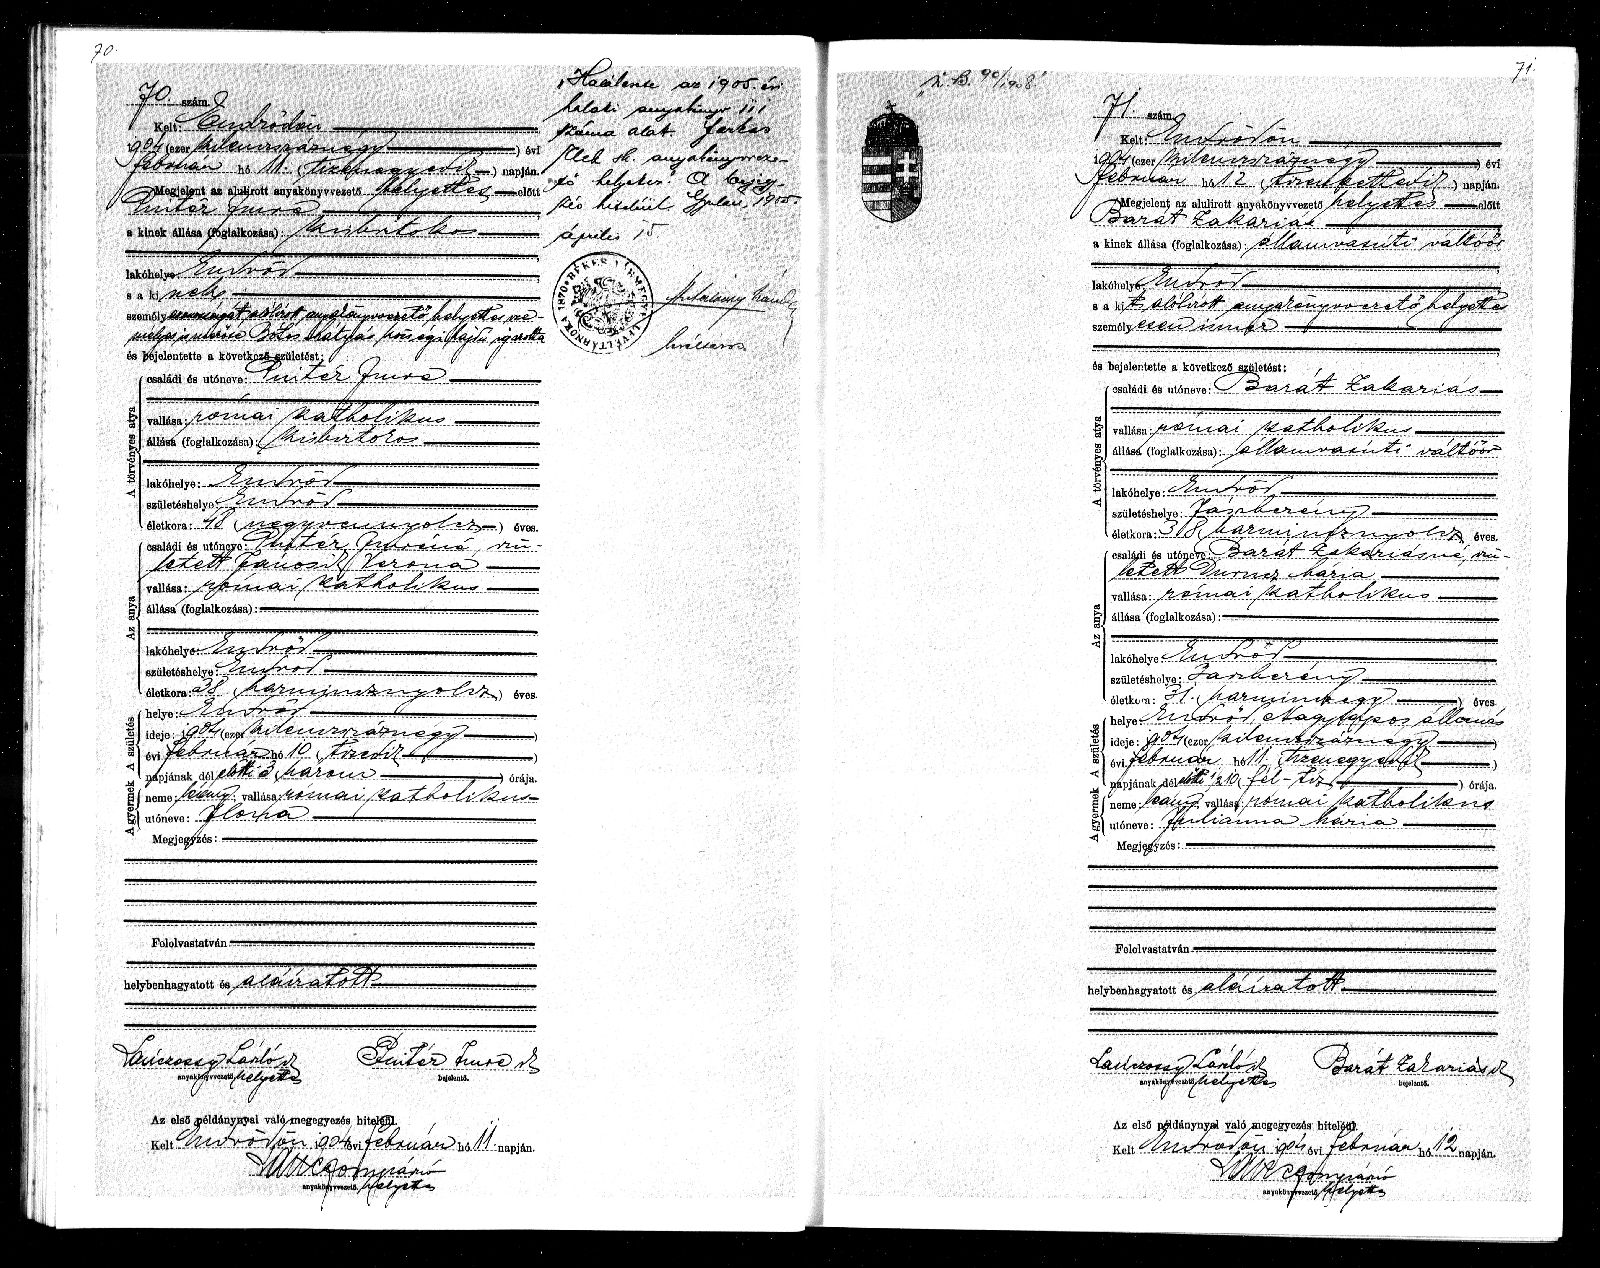 70.
70. szám.
Kelt: Endrődön
1904 (ezer kilenczszáznégy) évi
február hó 11. (tizenegyedik) napján.
Megjelent az alulirott anyakönyvvezető helyettes előtt
Pintér Imre
a kinek állása (foglalkozása): kisbirtokos
lakóhelye: Endrőd
s a ki nek
személyazonosságát alólírott anyakönyvvezető helyettes
Botos Mátyás községi hajdú igazolta
és bejelentette a következő születést:
A törvényes atya
családi és utóneve: Pintér Imre
vallása: római katholikus
állása (foglalkozása): kisbirtokos
lakóhelye: Endrőd
születéshelye: Endrőd
életkora: 48 (negyvennyolcz) éves.
Az anya
családi és utóneve: Pintér Imréné, szü-
letett Jánosik Verona
vallása: római katholikus
állása (foglalkozása):
lakóhelye: Endrőd
születéshelye: Endrőd
életkora: 38 (harmincznyolcz) éves.
A gyermek A születés
helye: Endrőd
ideje: 1904 (ezer kilenczszáznégy)
évi február hó 10 (tizedik)
napjának dél előtti 3 három) órája.
neme: leány; vallása: római katholikus
utóneve: Ilona
Megjegyzés:
Fölolvastatván
helybenhagyatott és aláíratott
László
anyakönyvvezető helyettes
Pintér Imre sk
bejelentő.
Az első példánynyal való megegyezés hiteléül.
Kelt Endrődön 1904 évi február hó 11 napján.
anyakönyvvezető helyettes
az 1905. évi
halálo anyakönyv 111
száma alatt. Farkas
Elek sk. anyakönyvveze-
tő helyettes. A
zés hiteléül Gyulán 1905.
április 15
BÉKÉS VÁRMEGYE LEVÉLTÁRNOKA 1870
71.
71. szám.
Kelt: Endrődön
1904 (ezer kilenczszáznégy) évi
február hó 12 (tizenkettedik) napján.
Megjelent az alulirott anyakönyvvezető helyettes előtt
Barát Zakariás
a kinek állása (foglalkozása): államvasúti váltóőr
lakóhelye: Endrőd
s a kit alólírott anyakönyvvezető helyettes
személyesen ismer
és bejelentette a következő születést:
A törvényes atya
családi és utóneve: Barát Zakariás
vallása: római katholikus
állása (foglalkozása): államvasúti váltóőr
lakóhelye: Endrőd
születéshelye: Jászberény
életkora: 38 (harmincznyolcz) éves.
Az anya
családi és utóneve: Barát Zakariásné, szü-
letett Mária
vallása: római katholikus
állása (foglalkozása):
lakóhelye: Endrőd
születéshelye: Jászberény
életkora: 31. (harminczegy) éves.
A gyermek A születés
helye: Endrőd, Nagylapos állomás
ideje: 1904 (ezer kilenczszáznégy)
évi február hó 11. (tizenegyedik)
napjának dél előtti ½10 (fél-tiz) órája.
neme: leány; vallása: római katholikus
utóneve: Julianna Mária
Megjegyzés:
Fölolvastatván
helybenhagyatott és aláíratott
László
anyakönyvvezető helyettes
Barát Zakariás sk
bejelentő.
Az első példánynyal való megegyezés hiteléül.
Kelt Endrődön 1904 évi február hó 12 napján.
anyakönyvvezető helyettes